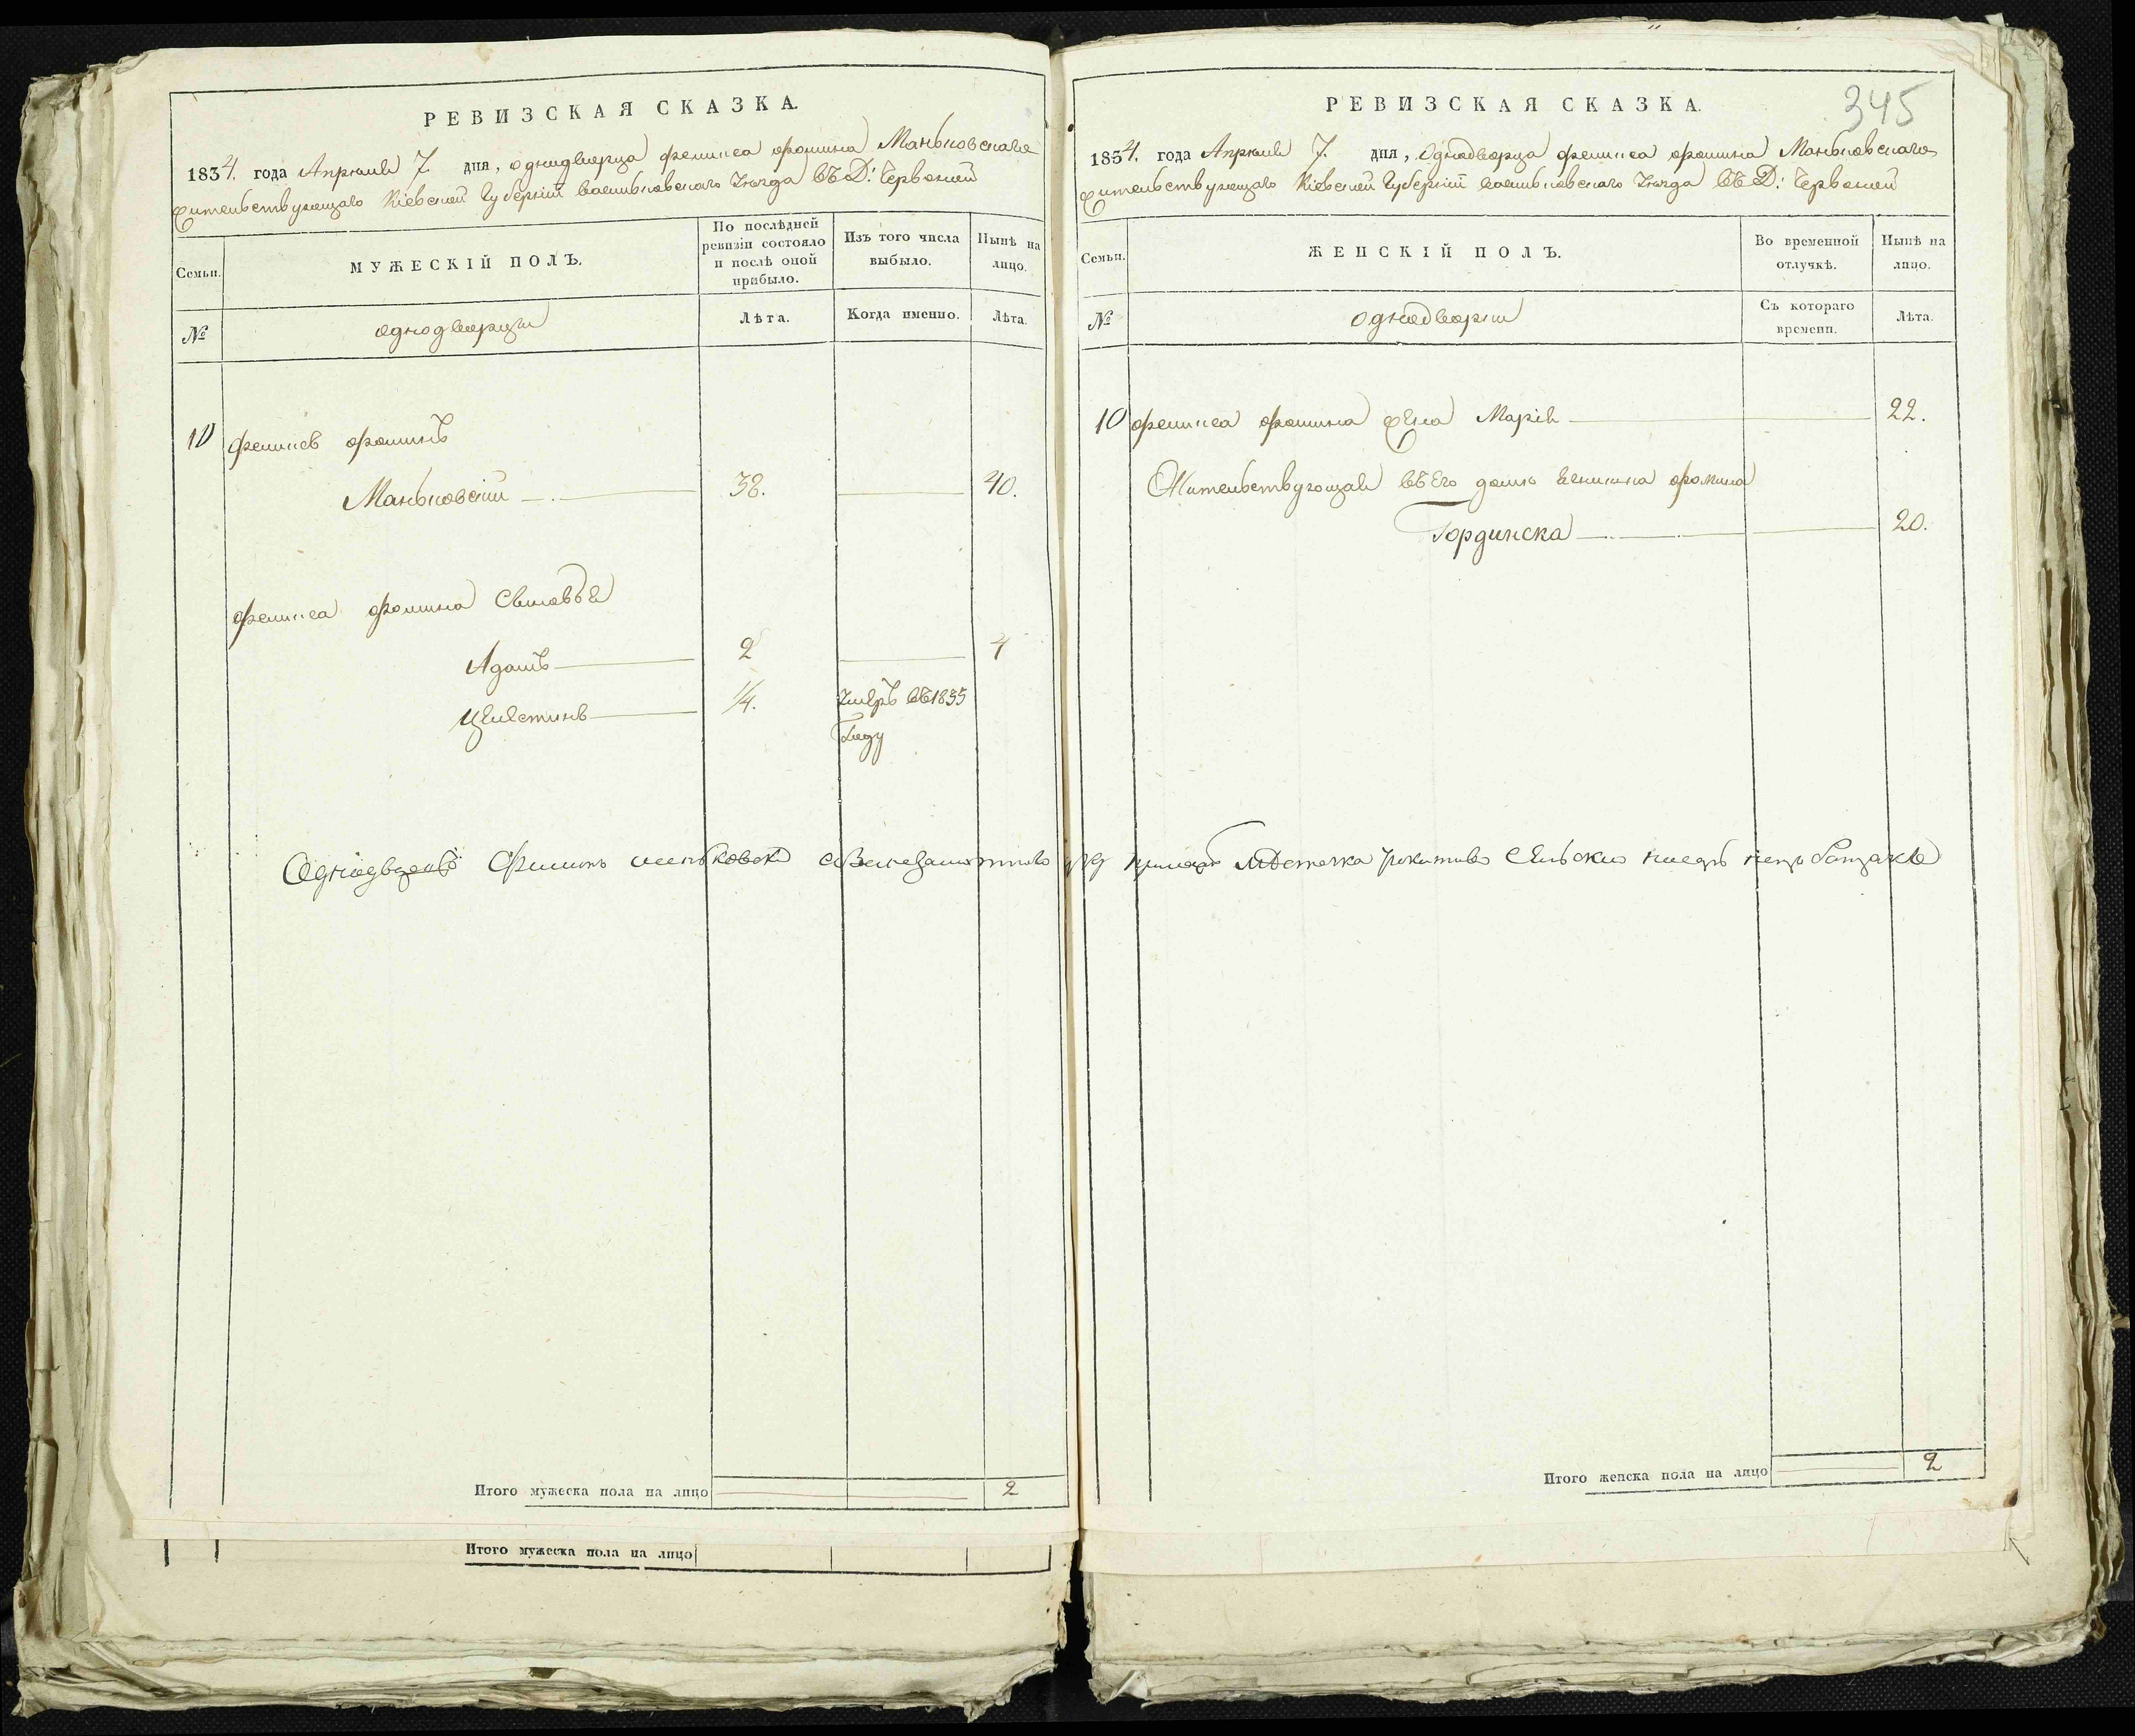 РЕВИЗСКАЯ СКАЗКА.
1834. года Апрѣля 7. дня, однодворца Феликса Фомина Маньковскаго
жительствующаго Кіевской Губерніи Васильковскаго Уѣзда въ Д: Червоной
Семьи.
МУЖЕСКІЙ ПОЛЪ.
По послѣдней ревизіи состояло и послѣ оной прибыло.
Изъ того числа выбыло.
Нынѣ на лицо.
№
однодворцы
Лѣта.
Когда именно.
Лѣта.
10 Феликсъ Фоминъ
Маньковскій 38. 40.
Феликса Фомина Сыновья
Адамъ 2 4
Целестинъ 1/4. Умеръ въ 1833
Году
Однодвецъ
Итого мужеска пола на лицо 2
Итого мужеска пола на лицо
345
РЕВИЗСКАЯ СКАЗКА.
1834. года Апрѣля 7. дня, Однодворца Феликса Фомина Маньковскаго
жительствующаго Кіевской Губерніи Васильковскаго Уѣзда въ Д: Червоной
Семьи.
ЖЕНСКІЙ ПОЛЪ.
Во временной отлучкѣ.
Нынѣ на лицо.
№
Однодворки
Съ котораго времени.
Лѣта.
10 Феликса Фомина жена Марія 22.
Жительствующая въ Его домѣ Фомина
Гординска 20.
мѣстечка
Итого женска пола на лицо 2